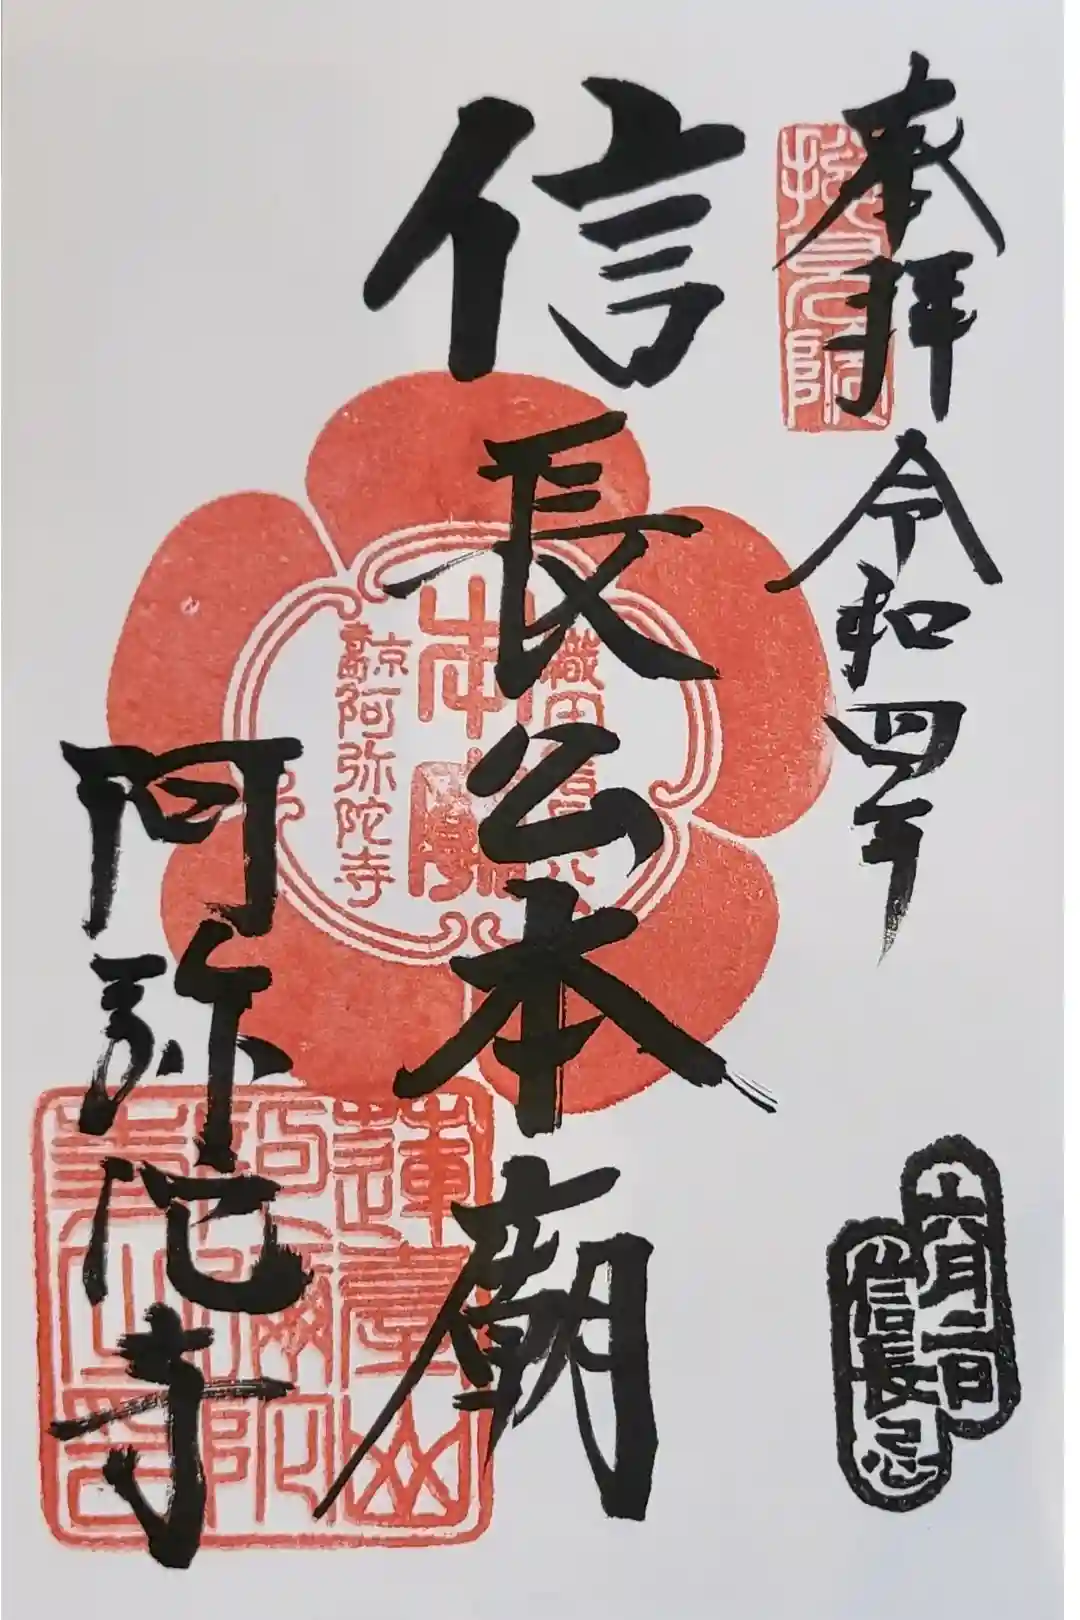 奉拝 令和四年
六月二日
信長忌
信長公本廟
織田信
本廟
京
阿弥陀寺
阿弥陀寺
蓮臺山